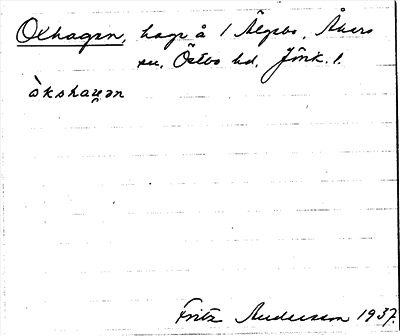 Oxhagen, hage å 1 Älgebo, Åkers
sn, Östbo hd, Jönk. l.
òkshagən
Fritz Andersson 1937.